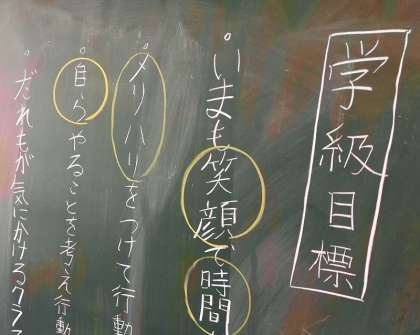 学級目標
・いまも笑顔で時間
・メリハリをつけて行動
・自らやることを考え行動
・だれもが気にかけるクラス